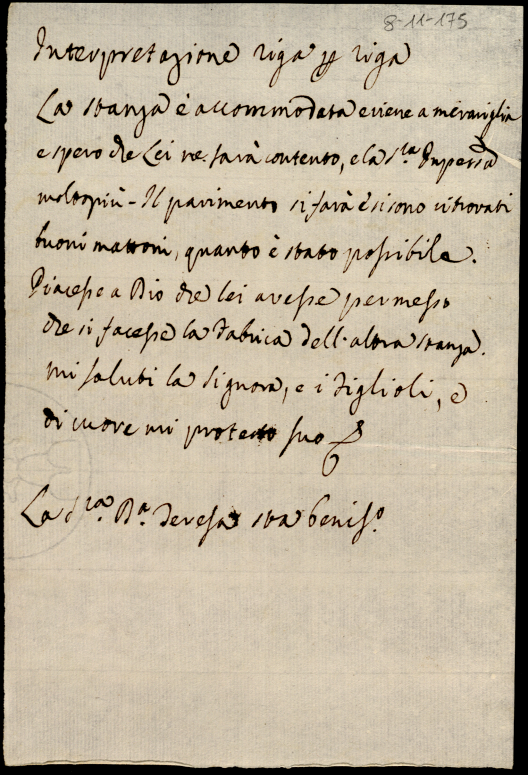 8-11-175
Interpretazione riga p riga
La stanza è accommodata e viene a meraviglia
e spero che Lei ne sarà contento, e la S.ra Impersa
molto più - Il pavimento si farà e si sono ritrovati
buoni mattoni, quanto è stato possibile.
Piacesse a Dio che lei avesse permesso
che si facesse la Fabrica dell'altra stanza.
mi saluti la Signora, e i Figlioli, e
di cuore mi protesto suo
La S.ra B.a Teresa sta beniss.o